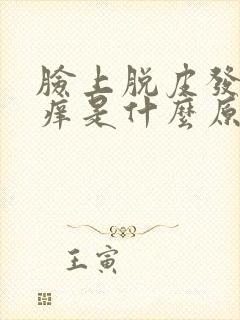 臉上脱皮發
癢是什麼原
王寅